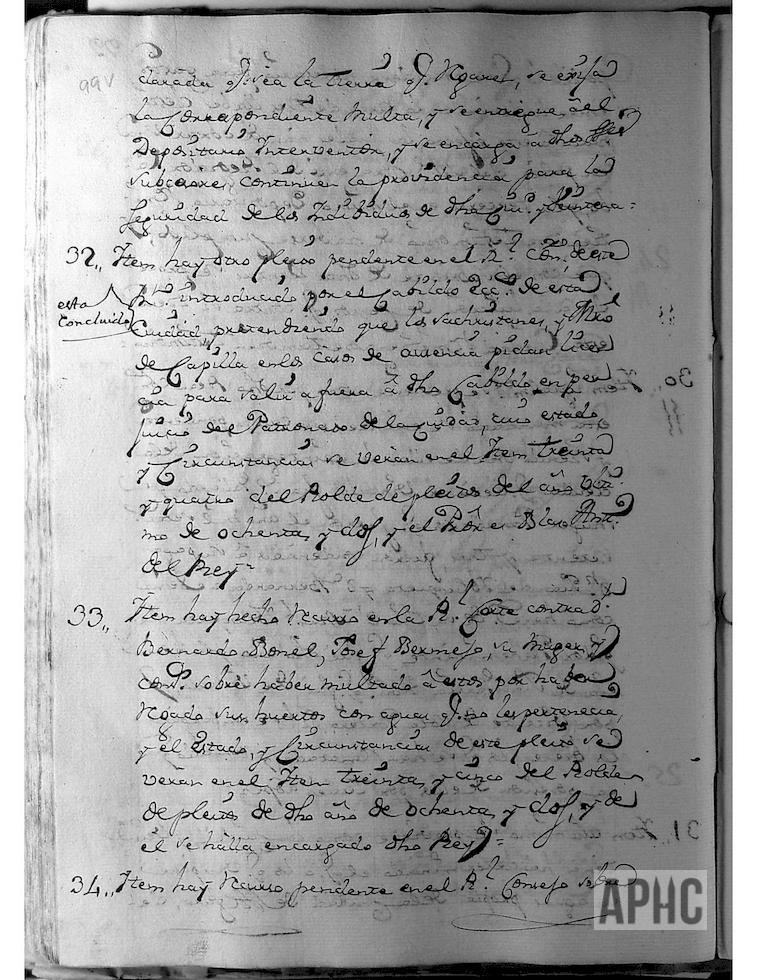 99v
clarada q.e sea la tierra q.e Regare, se exija
la Correspondiente Multa, y se entregue a el
Depositario Interventor, y se encarga a dhos
subcesores continuen la providencia para la
seguridad de los Individuos de dha
32,, Item hay otro pleito pendente en el R.l Con.o de este
introducido por el Cabildo Ecc.co de esta
esta
Concluido
Ciudad, pretendiendo que los sachristanes, y
de Capilla en los casos de ausencia pidan licen
cia para salir a fuera a dho Cabildo en per
juicio del Patronato de la Ciudad, cuio estado,
y Circunstancias se veran en el Item treinta
y quatro del Rolde de pleitos del año ulti
mo de ochenta, y dos, y el Pror. es Blas Ant.o
del Rey=
33,, Item hay hecho Recurso en la R.l Corte contra d.n
Bernardo Bonel, Josef Bermejo, su Muger, y
con.s sobre haber multado a estos por haber
Regado sus huertos con aguas q.e no les pertenecia,
y el Estado, y Circunstancias de este pleito se
veran en el Item treinta, y cinco del Rolde
de pleitos de dho año de ochenta, y dos, y de
él se halla encargado dho Rey=
34,, Item hay Recurso pendente en el R.l Consejo sobre
30
31,,
APHC